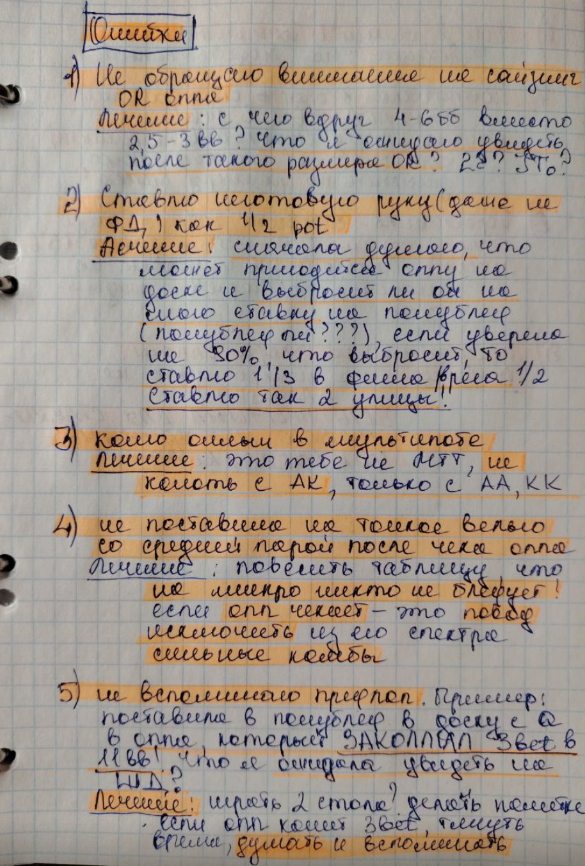 Ошибки
1) Не обращаю внимание на сайзинг
OR оппа
Лечение: с чего вдруг 4-6бб вместо
2,5-3ВВ? Что я ожидаю увидеть
после такого размера OR? 22? JTo?
2) Ставлю неготовую руку (даже не
ФД,) как 1/2 pot
Лечение: сначала думаю, что
может приходится оппу на
доске и выбросит ли он на
мою ставку на полублеф
(полублеф ли???), если уверена
на 90%, что выбросит, то
ставлю 1/3 в фиша/рега 1/2
Ставлю так 2 улицы!
3) колю оллын в мультипоте
Лечение: это тебе не МТТ, не
колоть с АК, только с АА, КК
4) не поставила на тонкое велью
со средней парой после чека оппа
Лечение: повесить таблицу, что
на микро никто не блефует!
если опп чекает – это повод
исключить из его спектра
сильные комбы
5) не вспоминаю префлоп. Пример:
поставила в полублеф в доску с Q
в оппа который ЗАКОЛЛИЛ 3bet в
11ВВ! Что я ожидала увидеть на
ШД?
Лечение: играть 2 стола? делать пометки
если опп колит 3bet, тянуть
время, думать и вспоминать